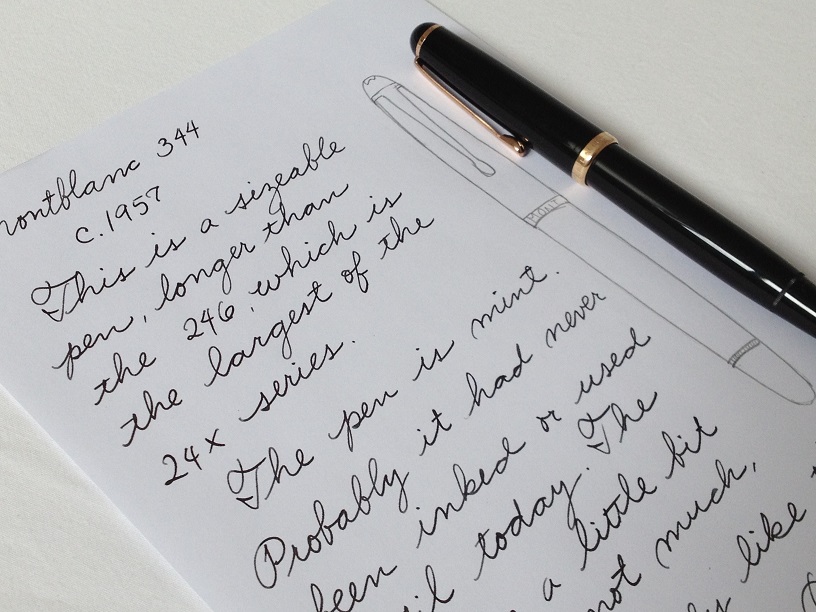 montblanc 344
c.1957
This is a sizeable
pen, longer than
the 246, which is
the largest of the
24x series.
The pen is mint.
Probably it had never
been inked or used
today. The
a little bit
not much,
like
MONT